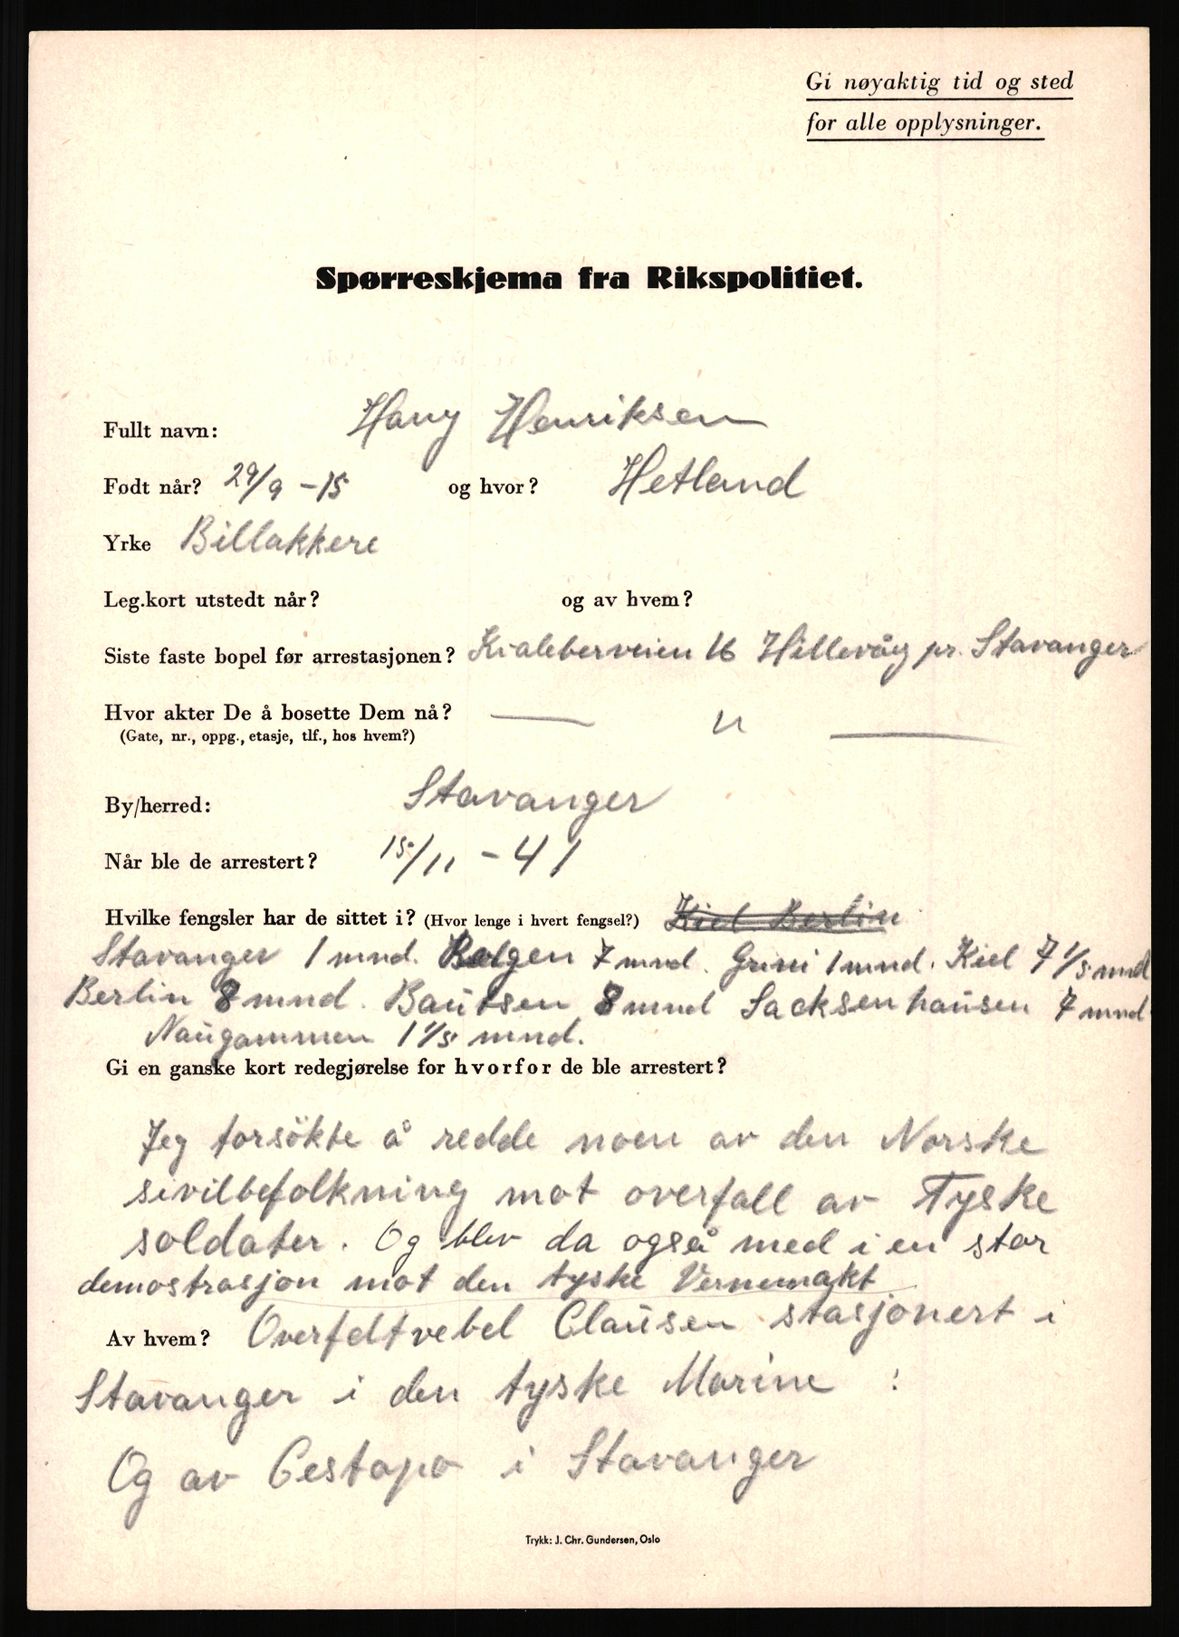 Gi nøyaktig tid og sted
for alle opplysninger.
Spørreskjema fra Rikspolitiet.
Fullt navn: Harry Henriksen
Født når? 29/9 -15 og hvor? Hetland
Yrke Billakkere
Leg.kort utstedt når? og av hvem?
Siste faste bopel før arrestasjonen? Kvaleberveien 16 Hillevåg pr. Stavanger
Hvor akter De å bosette Dem nå? — " —
(Gate, nr., oppg., etasje, tlf., hos hvem?)
By/herred: Stavanger
Når ble de arrestert? 15/11 - 41
Hvilke fengsler har de sittet i? (Hvor lenge i hvert fengsel?) Kiel Berlin
Stavanger 1 mnd. Bergen 7 mnd. Grini 1 mnd. Kiel 7 1/5 mnd
Berlin 8 mnd. Bautsen 8 mnd Sacksenhausen 7 mnd.
Naugammen 1 1/5 mnd.
Gi en ganske kort redegjørelse for hvorfor de ble arrestert?
Jeg forsökte å redde noen av den Norske
sivilbefolkning mot overfall av Tyske
soldater. Og blev da også med i en stor
demostrasjon mot den tyske Vernemakt
Av hvem? Overfeltvebel Clausen stasjonert i
Stavanger i den tyske Marine :
Og av Gestapo i Stavanger
Trykk: J. Chr. Gundersen, Oslo